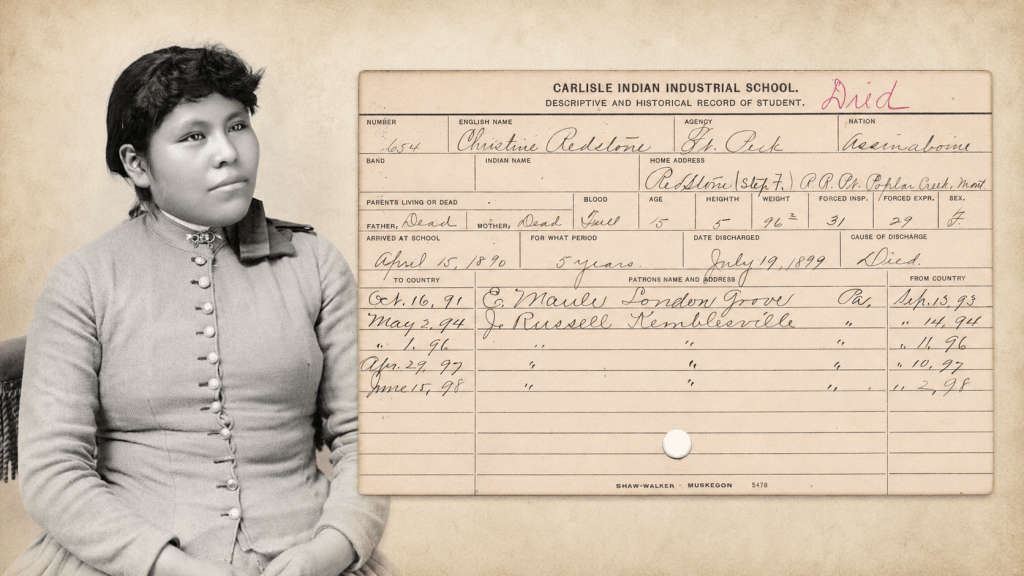 CARLISLE INDIAN INDUSTRIAL SCHOOL.
Died
DESCRIPTIVE AND HISTORICAL RECORD OF STUDENT.
NUMBER ENGLISH NAME AGENCY NATION
654 Christine Redstone Ft. Peck Assinaboine
BAND INDIAN NAME HOME ADDRESS
RedStone (Step F.) P.O. Poplar Creek, Mont
PARENTS LIVING OR DEAD BLOOD AGE HEIGHTH WEIGHT FORCED INSP. FORCED EXPR. SEX.
FATHER, Dead MOTHER, Dead Full 15 5 96 2 31 29 F.
ARRIVED AT SCHOOL FOR WHAT PERIOD DATE DISCHARGED CAUSE OF DISCHARGE
April 15, 1890 5 years. July 19, 1899 Died.
TO COUNTRY PATRONS NAME AND ADDRESS FROM COUNTRY
Oct. 16, 91 E. Maule London Grove Pa. Sep. 13, 93
May 2, 94 J. Russell Kemblesville " " 14, 94
" 1, 96 " " " " 11, 96
Apr. 29, 97 " " " " 10, 97
June 15, 98 " " " " 2, 98
SHAW-WALKER MUSKEGON 5478